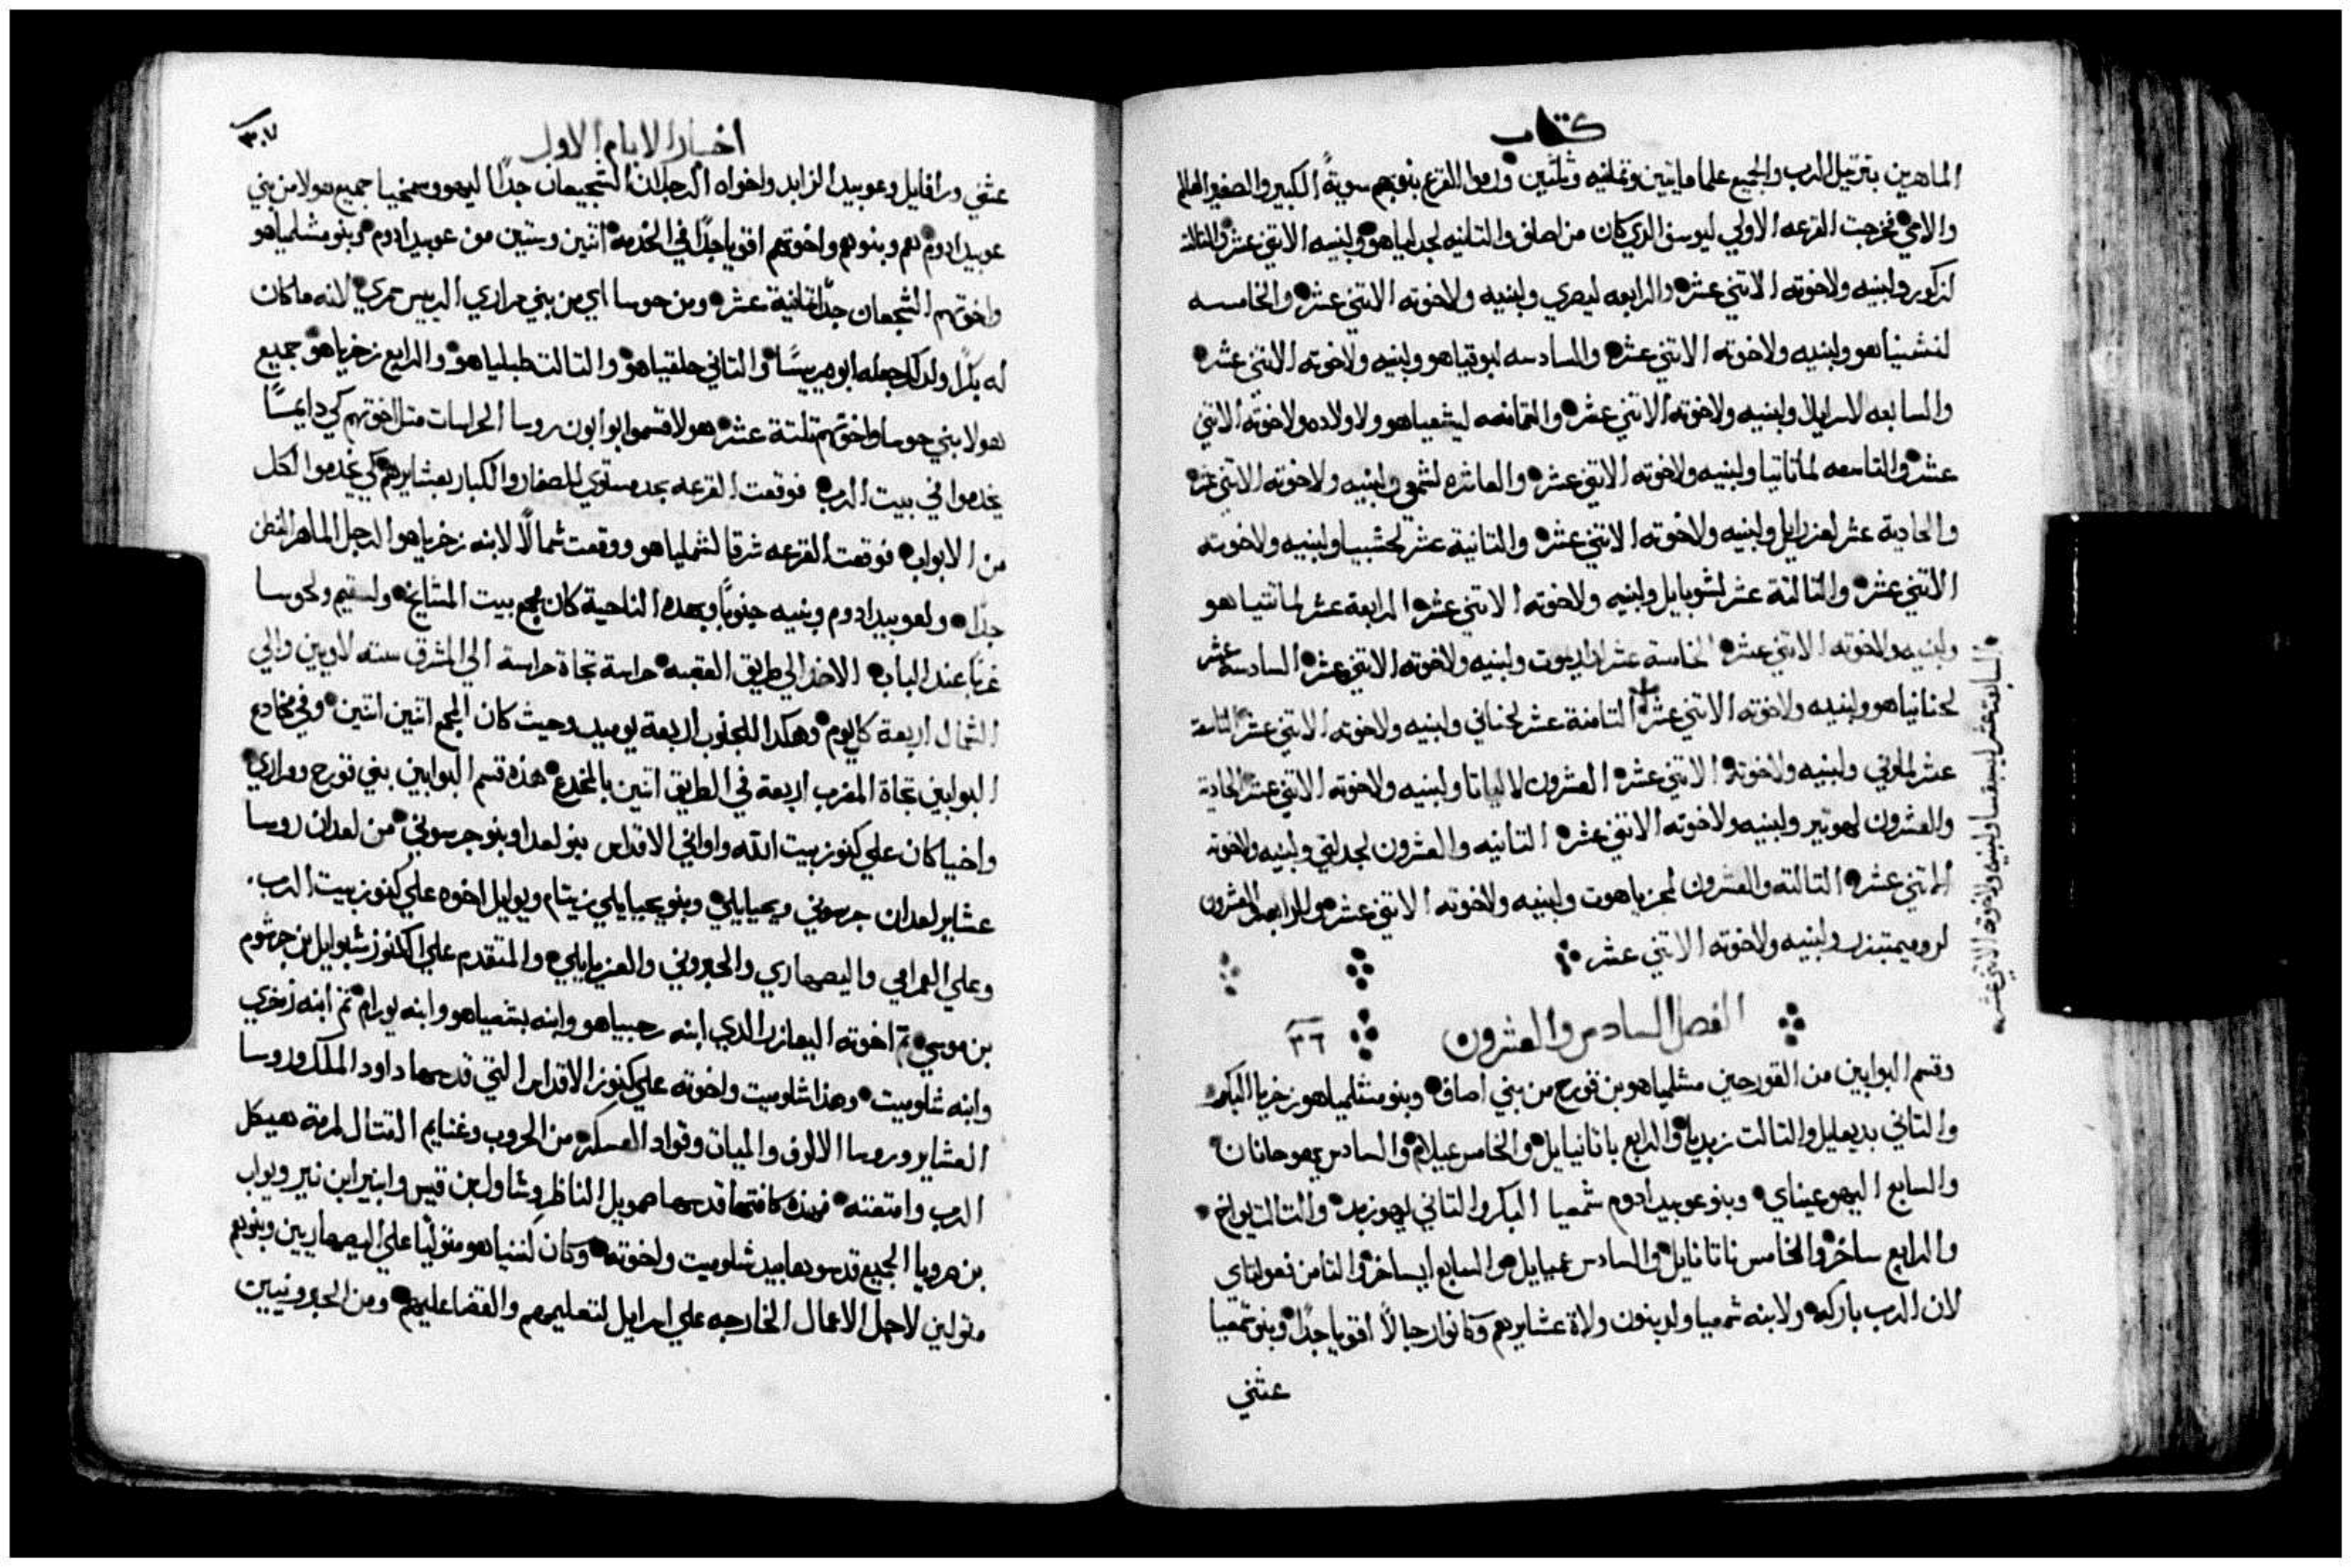 كتاب
الماهرين بترتيل الرب والجميع علما مايتين وتمانيه وثلثين ورموا القرع بنوبهم سوية الكبير والصغير العالم
والامي فخرجت القرعه الاولي ليوسف الذي كان من اصاف والتانيه لجدلياهو ولبنيه الاتني عشر والتالته
لزكور ولبنيه ولاخوته الاتني عشر والرابعه ليصري ولبنيه ولاخوته الاتني عشر والخامسه
لنشنياهو ولبنيه ولاخوته الاتني عشر والسادسه لبوقياهو ولبنيه ولاخوته الاتني عشر
والسابعه لاسرايلا ولبنيه ولاخوته الاتني عشر والتمانعه ليشعياهو ولاولاده ولاخوته الاتني
عشر والتاسعه لماتانيا ولبنيه ولاخوته الاتني عشر والعاشره لشمعي ولبنيه ولاخوته الاتني عشر
والحادية عشر لعزرايل ولبنيه ولاخوته الاتني عشر والتانية عشر لحشبيا ولبنيه ولاخوته
الاتني عشر والتالتة عشر لشوبايل ولبنيه ولاخوته الاتني عشر الرابعة عشر لماتتياهو
ولبنيه ولاخوته الاتني عشر الخامسة عشر ليريموت ولبنيه ولاخوته الاتني عشر السادسة عشر
لحنانياهو ولبنيه ولاخوته الاتني عشر التامنة عشر لحناني ولبنيه ولاخوته الاتني عشر التاسعة
عشر لملوتي ولبنيه ولاخوته الاتني عشر العشرون لالياتا ولبنيه ولاخوته الاتني عشر الحادية
والعشرون لهوتير ولبنيه ولاخوته الاتني عشر التانيه والعشرون لجدلتي ولبنيه ولاخوته
الاتني عشر التالته والعشرون لمحزياهوت ولبنيه ولاخوته الاتني عشر والرابعه والعشرون
لروميمتيزر ولبنيه ولاخوته الاتني عشر
السابعة عشر ليسبقسا ولبنيه ولاخوته الاتني عشر
الفصل السادس والعشرون ٢٦
وقسم البوابين من القورحيين مشلمياهو بن قورح من بني اصاف وبنو مشلمياهو زخريا البكر
والتاني يديعايل والتالت زبديا والرابع ياتانيايل والخامس عيلام والسادس يهوحانان
والسابع اليهوعيناي وبنو عوبيد ادوم شمعيا البكر والتاني ليهوزبد والتالت يواخ
والرابع ساخر والخامس ناتانايل والسادس عميايل والسابع ايساخر والتامن فعولتاي
لان الرب باركه ولابنه شمعيا ولد بنون ولاة عشايرهم وكانوا رجالا اقويا جدا وبنو شمعيا
عتني
اخبار الايام الاول ٣٠٧
عتني ورافايل وعوبيد الزابد واخواه الرجلان الشجيعان جدا اليهو وسمخيا جميع هولا من بني
عوبيد ادوم هم وبنوهم واخوتهم اقويا جدا في الخدمة اتنين وستين من عوبيد ادوم وبنو مشلمياهو
واخوتهم الشجعان جدا تمانية عشر ومن حوسا اي من بني مراري الرييس شمري لانه ما كان
له بكرا ولذلك جعله ابوه رييسا والتاني حلقياهو والتالت طبلياهو والرابع زخرياهو جميع
هولا بني حوسا واخوتهم تلتة عشر هولا قسموا بوابون روسا الحراسات متل اخوتهم كي دايمًا
يخدموا في بيت الرب فوقعت القرعه بحد مستوي للصغار والكبار بعشايرهم كي يخدموا لكل
من الابواب فوقعت القرعه شرقا لشملياهو ووقعت شمالا لابنه زخرياهو الرجل الماهر الفطن
جدا ولعوبيد ادوم وبنيه جنوبا وبهده الناحية كان مجمع بيت المشايخ ولسفيم ولحوسا
غربا عند الباب الاخذ الي طريق العقبه حراسة تجاة حراسة الي المشرق سته لاويين والي
الشمال اربعة كل يوم وهكدا للجنوب اربعة يوميد وحيث كان المجمع اتنين اتنين وفي مخادع
البوابين تجاة المغرب اربعة في الطريق اتنين بالمخدع هذه قسم البوابين بني قورح ومراري
واخيا كان علي كنوز بيت الله واواني الاقداس بنو لعدا وبنو جرسوني من لعدان روسا
عشاير لعدان جرسوني ويحيايلي وبنو يحيايلي زيتام ويوايل اخوه علي كنوز بيت الرب
وعلي العمرامي واليصهاري والحبروني والعزيايلي والمتقدم علي الكنوز شبوايل بن جرشوم
بن موسي تم اخوته اليعازر الذي ابنه رحبياهو وابنه يشعياهو وابنه يورام تم ابنه زخري
وابنه شلوميت وهذا شلوميت واخوته علي كنوز الاقداس التي قدسها داود الملك وروسا
العشاير وروسا الالوف والميات وقواد العسكر من الحروب وغنايم القتال لمرمة هيكل
الرب وامتعته فهذه كافتها قدسها صمويل الناظر وشاول بن قيس وابنير ابن نير ويواب
بن صرويا الجميع قدسوها بيد شلوميت واخوته وكان كننياهو متوليا علي اليصهاريين وبنوهم
متولين لاجل الاعمال الخارجه علي اسرايل لتعليمهم والقضا عليهم ومن الحبرونيين